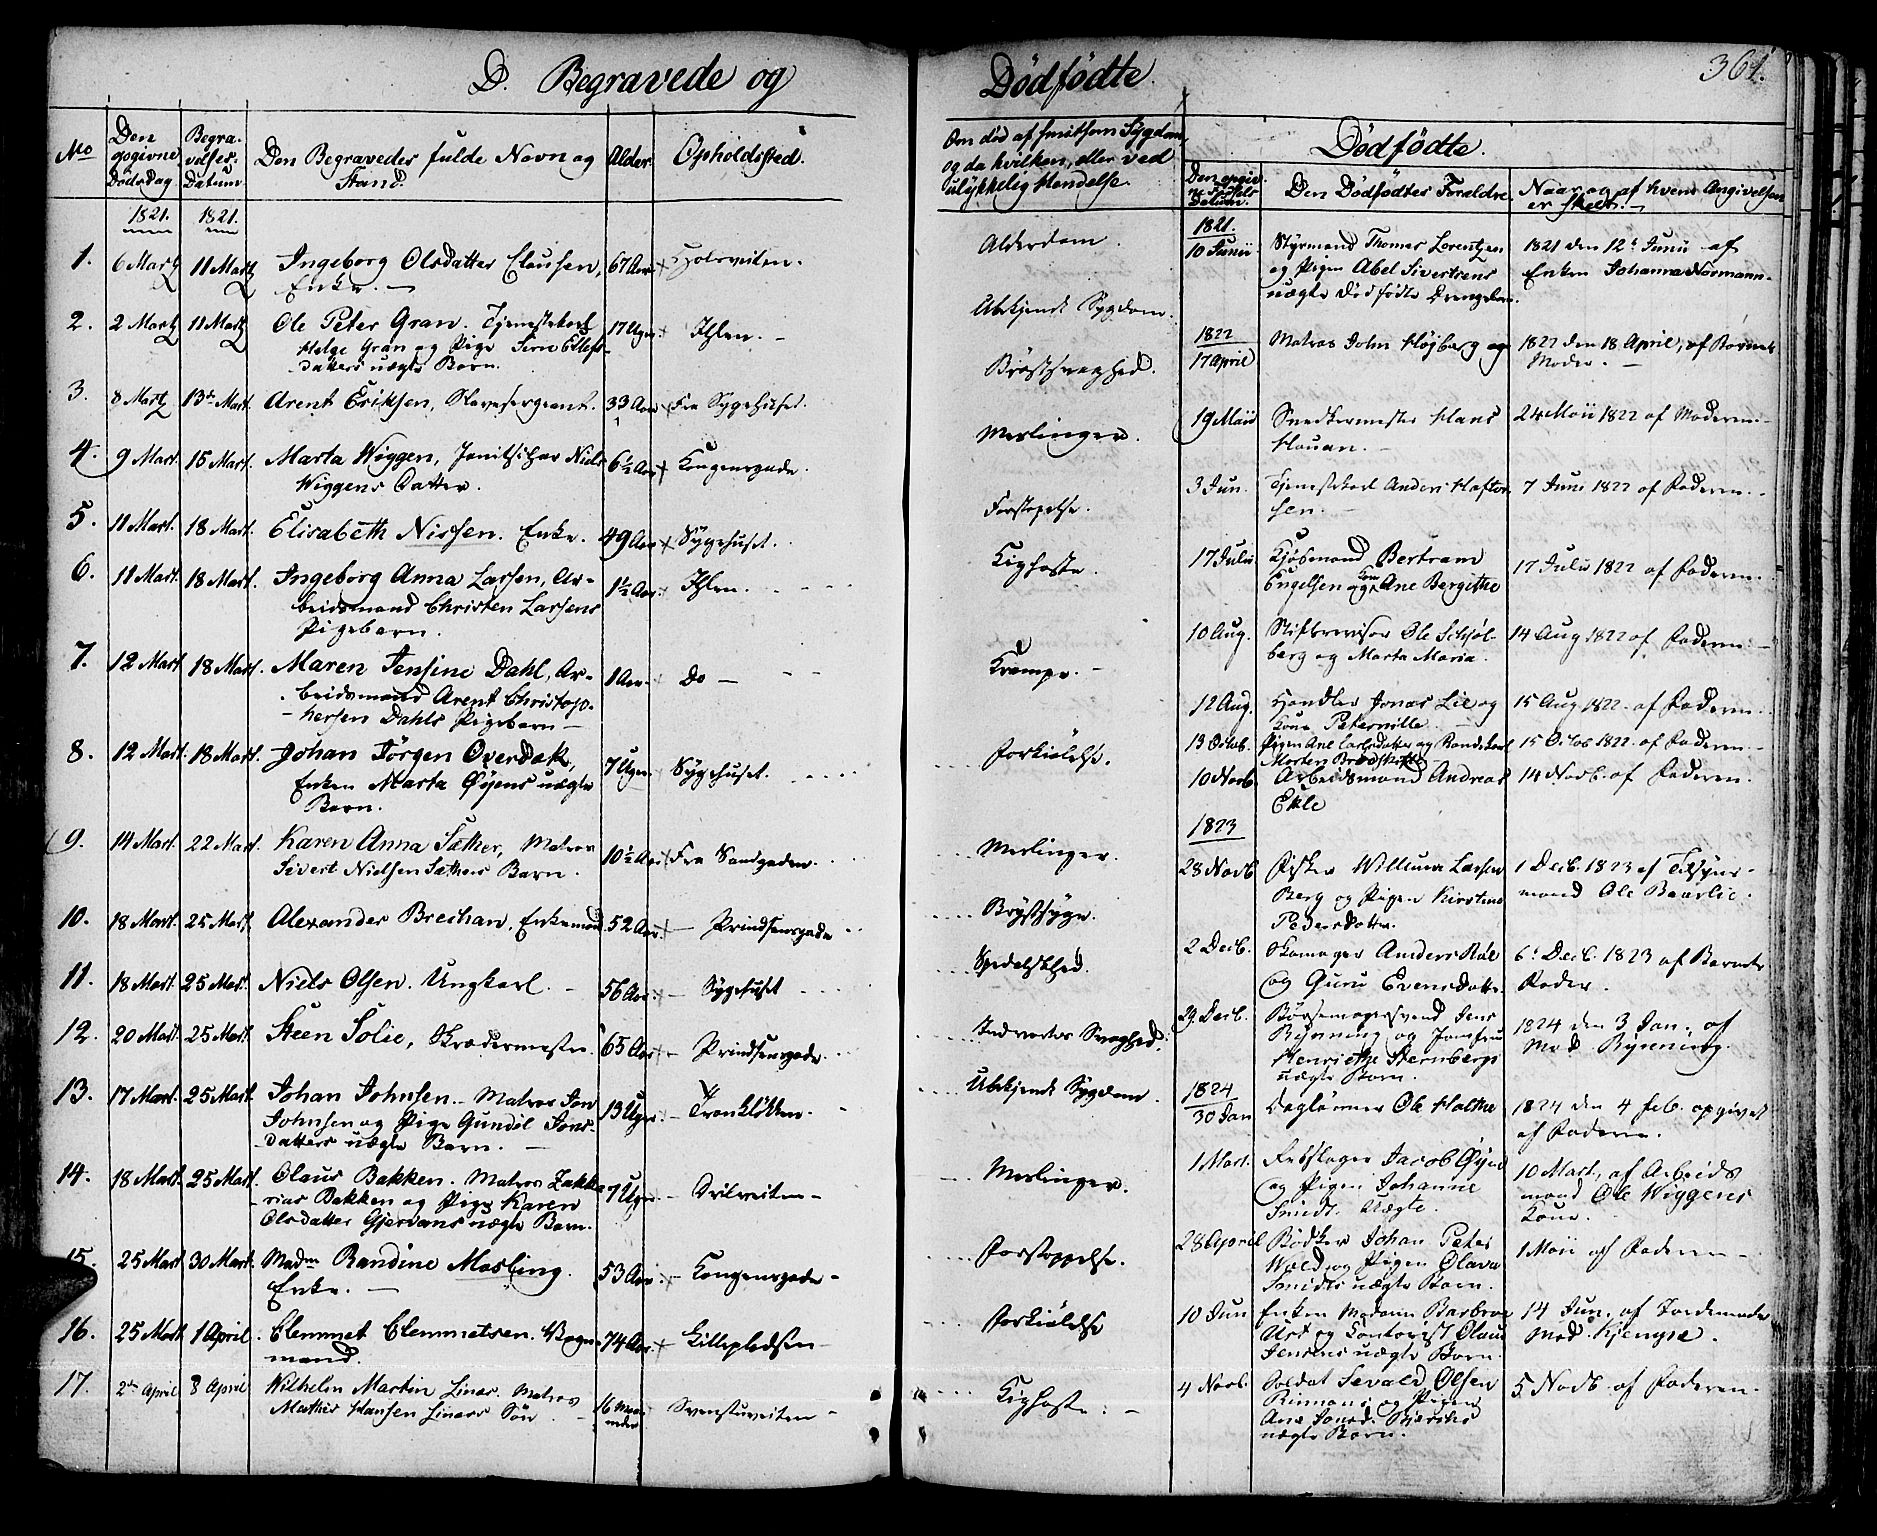 D. Begravede og Dødfødte.
364.
No
Den opgivne Dødsdag
Begravelses Datum
Den Begravedes fulde Navn og Stand.
Alder.
Opholdssted.
Om død af smitsom Sygdom, og da hvilken, eller ved ulykkelig Hendelse.
1821. 1821.
1. 6 Martz 11 Martz Ingeborg Olsdatter Clausen, 67 Aar
Enke. — Alderdom.
2. 2 Martz 11 Martz Ole Peter Gran. Tjenestekarl 17 Uger Ihlen. —
Helge Gran og Pige
datters uægte Barn. Ubekjendt Sygdom.
3. 8 Martz 13de Mart. Arent Eriksen, Slavesergeant. 33 Aar Fra Sygehuset.
Brøstsvaghed.
4. 9 Mart. 15 Mart. Marta Wiggen, Niels 6½ Aar Kongensgade.
Wiggens Datter. Meslinger.
5. 11 Mart. 18 Mart. Elisabeth Nissen. Enke. 49 Aar Sygehuset.
Forstoppelse.
6. 11 Mart. 18 Mart. Ingeborg Anna Larsen, Ar- 1½ Aar. Ihlen.
beidsmand Christen Larsens
Pigebarn. Kighoste.
7. 12 Mart. 18 Mart. Maren Jensine Dahl, Ar- 1 Aar. Do —
beidsmand Arent Christop-
hersen Dahls Pigebarn — Krampe. —
8. 12 Mart. 18 Mart. Johan Jørgen Overdak, 7 Uger Sygehuset.
Enken Marta Øyens uægte
Barn. Forkiølelse.
9. 14 Mart. 22 Mart. Karen Anna Sæther, Matros 10½ Aar Fra Sandgaden.
Sivert Nielsen Sæthers Barn. Meslinger.
10. 18 Mart. 25 Mart. Alexander Brechan, Enkemand 52 Aar. Prindsensgade
Brystsyge.
11. 18 Mart. 25 Mart. Niels Olsen. Ungkarl. 56 Aar. Sygehuset
Spedalskhed.
12. 20 Mart. 25 Mart. Steen Solie, Skrædermester. 65 Aar Prindsensgade
Indvortes Svaghed.
13. 17 Mart. 25 Mart. Johan Johnsen. Matros Jon 13 Uger.
Johnsen og Pige Gundil Jons-
datters uægte Barn. — Ubekjendt Sygdom.
14. 18 Mart. 25 Mart. Claus Bakken. Matros Zakka- 7 Uger
rias Bakken og Pige Karen
Olsdatter Gjervans uægte Barn. Meslinger.
15. 25 Mart. 30 Mart. Madm Randine Mosling. 53 Aar Kongensgade —
Enke. — Forstoppelse.
16. 25 Mart 1 April. Clemmet Clemmetsen. Vogn- 74 Aar.
mand. Forkiølelse
17. 2den April 8 April Wilhelm Martin Linar. Matros 16 Maa-
Mathis Hansen Linars Søn neder
Kighoste. —
Dødfødte.
Den opgivne Fødsels Datum.
Den Dødfødtes Forældre
Naar og af hvem Angivelsen er skeet. —
1821.
10 Junii Styrmand Thomas Lorentzen 1821 den 12te Junii af
og Pigen Abel Sivertsens Enken Johanna Normann.
uægte dødfødte Drengebarn.
1822
17 April Matros John Højberg og 1822 den 18 April, af Barnets
Moder. —
19 Maii Snedkermester Hans 24 Maii 1822 af Moderen.
Houan. —
3 Jun. Tjenestekarl Anders 7 Junii 1822 af Faderen. —
sen. —
17 Julii Kjøbmand Bertram 17 Julii 1822 af Faderen.
Engelsen og Kone Ane Bergithe
10 Aug. Stiftsrevisor Ole Schjøl- 14 Aug 1822 af Faderen. —
berg og Marta Maria.
12 Aug. Handler Jonas Lie og 15 Aug. 1822. af Faderen.
Kone Peternille.
13 Octob. Pigen Ane Carlsdatter og 15 Octob 1822. af Faderen. —
Morten
10 Novb. Arbeidsmand Andreas 14 Novb. af Faderen.
Ekle
1823
28 Novb Fisker Willum Larsen 1 Decb. 1823 af Tilsyns-
Berg og Pigen Kirstene mand Ole Baarlie.
Pedersdatter.
2 Decb. Skomager Anders 6te Decb. 1823 af Barnets
og Guru Evensdatter Fader.
29 Decb. Bøssemagersvend Jens 1824 den 3 Jan., af
Rynning og Jomfru Mad. Rynning.
Henriethe Sternbergs
uægte Barn.
1824
30 Jan Dagleönner Ole Holthe 1824 den 4 Feb. opgivet
af Faderen.
1 Mart. Rebslager Jacob Øyen 10 Mart., af Arbeids
og Pigen Johanne mand Ole Wiggens
Smidt. Uægte. Kone.
28 April Bødker Johan Peter 1 Maii af Faderen —
Wold og Pigen Olava
Smidts uægte Barn.
10 Jun Enken Madam Barbroe 14 Jun. af Jordemoder
Ust og Contorist Olaus Mad. Kjengse.
Jensens uægte Barn.
4 Novb. Soldat Sevald Olsen 5. Novb. af Faderen.
og Pigen
Ane Jonsd.
uægte Barn.